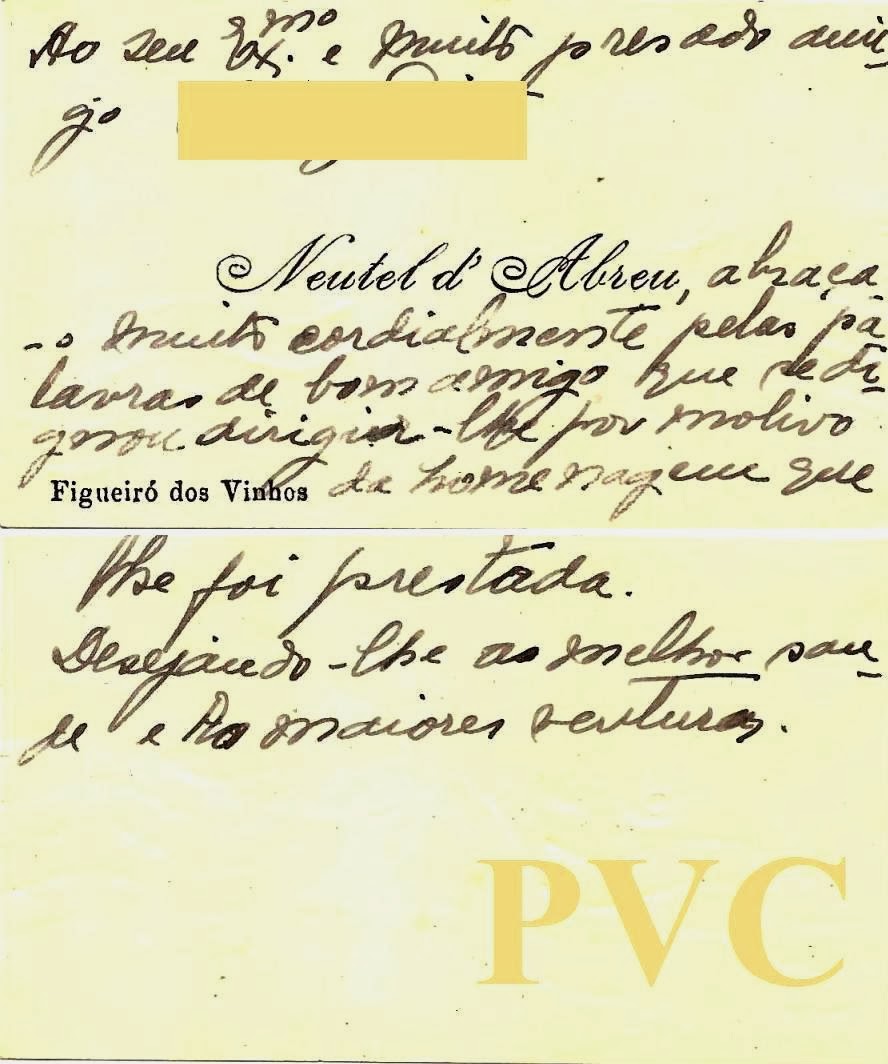 Ao seu Ex.mo e muito presado ami-
go
Neutel d'Abreu, abraça-
-o muito cordialmente pelas pa-
lavras de bom amigo que se di-
gnou dirigir-lhe por motivo
Figueiró dos Vinhos da homenagem que
lhe foi prestada.
Desejando-lhe as melhor sau-
de e as maiores venturas.
PVC